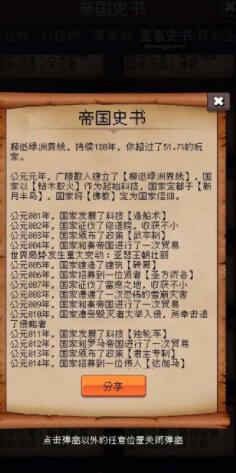 帝国史书
帝国史书
柳低绿洲界线，持续138年，你超过了51.7%的玩
家。
公元元年，广陵散人建立了【柳低绿洲界线】，国
家以【钻木取火】作为起始科技，国家定都于【新
月半岛】，国家将【佛教】定为国家信仰。
公元001年，国家发展了科技【造船术】
公元002年，国家征伐了修道院，收获不小
公元003年，国家颁布了政策【武卒制】
公元004年，国家和秦帝国进行了一次贸易
世界局势发生重大变动：亚瑟王朝壮丽
公元005年，国家建造了建筑【砖窑】
公元006年，国家招募到一位贤者【圣方济各】
公元007年，国家征伐了富庶之地，收获不小
公元008年，国家遭遇了一次恐怖的雪崩灾害
公元009年，国家和秦帝国进行了一次贸易
公元010年，国家遭受毁灭者大举入侵，所幸击退
了侵略者
公元011年，国家发展了科技【独轮车】
公元012年，国家和罗马帝国进行了一次贸易
公元013年，国家颁布了政策【君主专制】
公元014年，国家招募到一位伟人【达伽马】
分享
点击弹窗以外的任意位置关闭弹窗